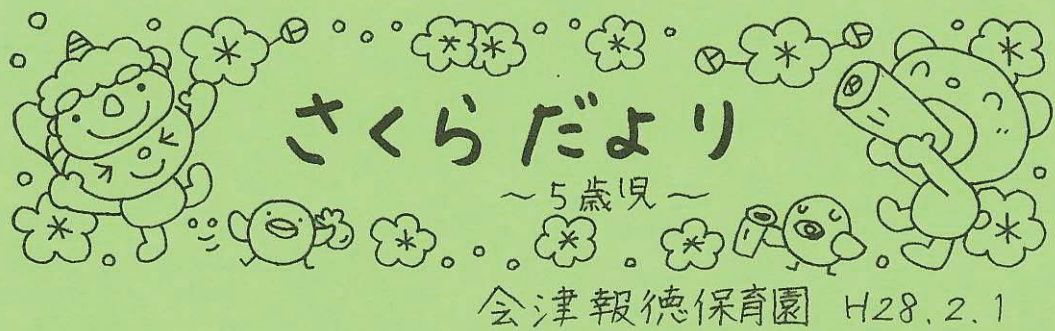 さくらだより
～5歳児～
会津報徳保育園 H28.2.1